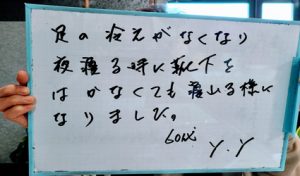 足の冷えがなくなり
夜寝る時に靴下を
はかなくても寝れる様に
なりました。
60代
Y.Y